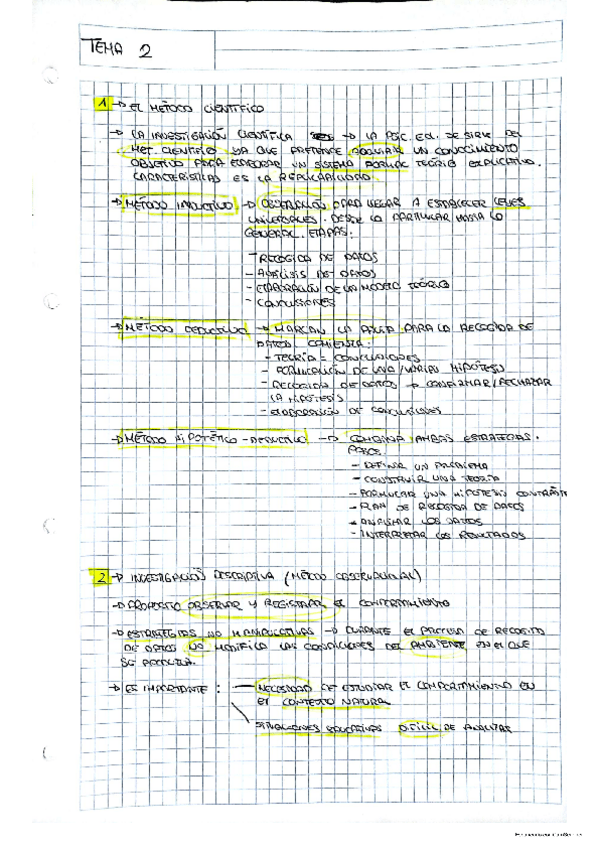 TEMA 2
1 → EL MÉTODO CIENTÍFICO
→ LA INVESTIGACIÓN CIENTÍFICA → LA PSIC. EDU. SE SIRVE DEL
MET. CIENTÍFICO YA QUE PRETENDE ADQUIRIR UN CONOCIMIENTO
OBJETIVO PARA ELABORAR UN SISTEMA TEÓRICO EXPLICATIVO.
CARACTERÍSTICAS ES LA REPLICABILIDAD.
→ MÉTODO INDUCTIVO → OBSERVACIÓN PARA LLEGAR A ESTABLECER LEYES
UNIVERSALES. DESDE LO PARTICULAR HASTA LO
GENERAL. ETAPAS:
- RECOGIDA DE DATOS
- ANÁLISIS DE DATOS
- ELABORACIÓN DE LA MODELO TEÓRICO
- CONCLUSIONES
→ MÉTODO DEDUCTIVO → MARCAN LA PAUTA PARA LA RECOGIDA DE
DATOS. COMIENZA:
- TEORÍA = CONCLUSIONES
- FORMULACIÓN DE UNA/VARIAS HIPÓTESIS
- RECOGIDA DE DATOS → CONFIRMAR/RECHAZAR
LA HIPÓTESIS
- ELABORACIÓN DE CONCLUSIONES
→ MÉTODO HIPOTÉTICO-DEDUCTIVO → COMBINA AMBAS ESTRATEGIAS.
PASOS
- DEFINIR UN PROBLEMA
- CONSTRUIR UNA TEORÍA
- FORMULAR UNA HIPÓTESIS
- PLAN DE RECOGIDA DE DATOS
- ANALIZAR LOS DATOS
- INTERPRETAR LOS RESULTADOS
2 → INVESTIGACIÓN DESCRIPTIVA (MÉTODO OBSERVACIONAL)
→ PROPÓSITO OBSERVAR Y REGISTRAR EL COMPORTAMIENTO
→ ESTRATEGIAS NO MANIPULATIVAS → DURANTE EL PROCESO DE RECOGIDA
DE DATOS NO MODIFICA LAS CONDICIONES DEL AMBIENTE EN EL QUE
SE PRODUZCA.
→ ES IMPORTANTE: NECESIDAD DE ESTUDIAR EL COMPORTAMIENTO EN
EL CONTEXTO NATURAL
SITUACIONES EDUCATIVAS DIFÍCIL DE ANALIZAR